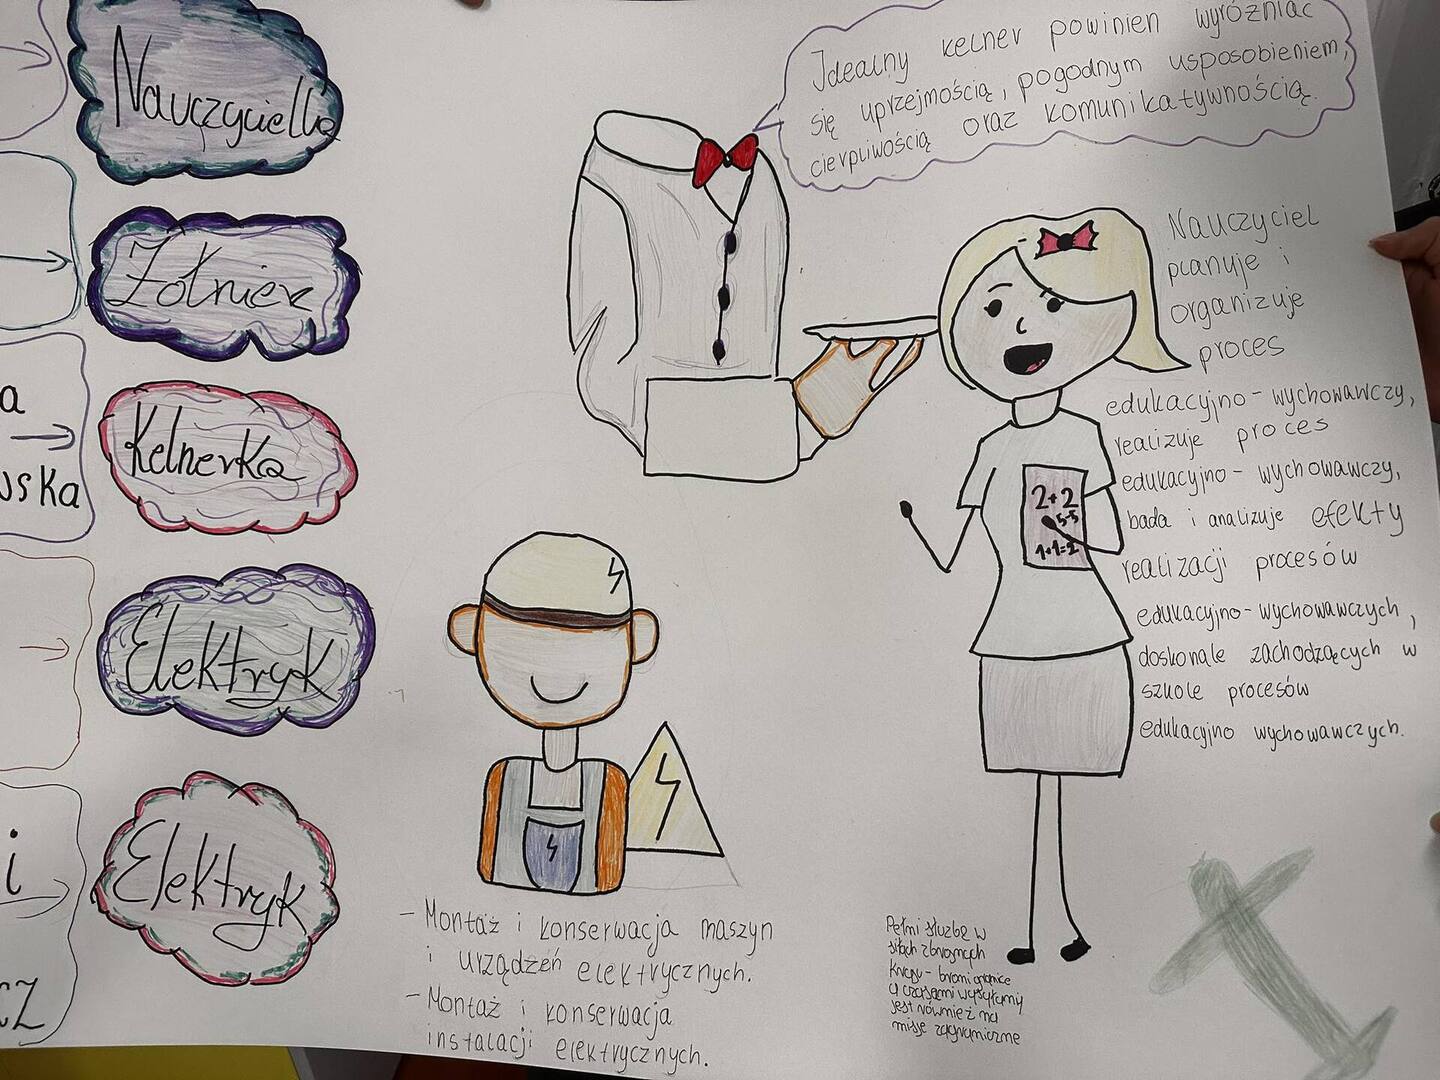 Nauczycielka
Żołnierz
a
Kelnerka
uska
Elektryk
i
Elektryk
cz
Idealny kelner powinien wyróżniać
się uprzejmością, pogodnym usposobieniem,
cierpliwością oraz komunikatywnością.
Nauczyciel
planuje i
organizuje
proces
edukacyjno-wychowawczy,
realizuje proces
edukacyjno-wychowawczy,
bada i analizuje efekty
realizacji procesów
edukacyjno-wychowawczych,
doskonale zachodzących w
szkole procesów
edukacyjno wychowawczych.
2+2
5-5
1+1=2
- Montaż i konserwacja maszyn
i urządzeń elektrycznych.
- Montaż i konserwacja
instalacji elektrycznych.
Pełni służbę w
siłach zbrojnych
kraju - broni granice
a czasami wysyłany
jest również na
misje zagraniczne